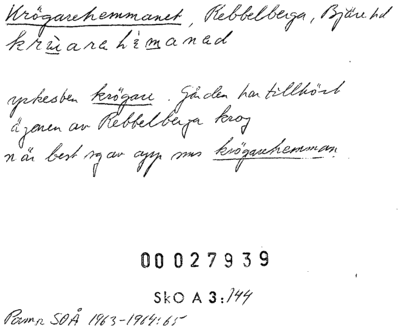 Krögarehemmanet, Rebbelberga, Bjäre hd
yrkesben krögare. Gården har tillhört
ägaren av Rebbelberga krog
när best sg av app krögarehemman
00 027939
SkO A 3:144
SOÅ 1963-1964:65